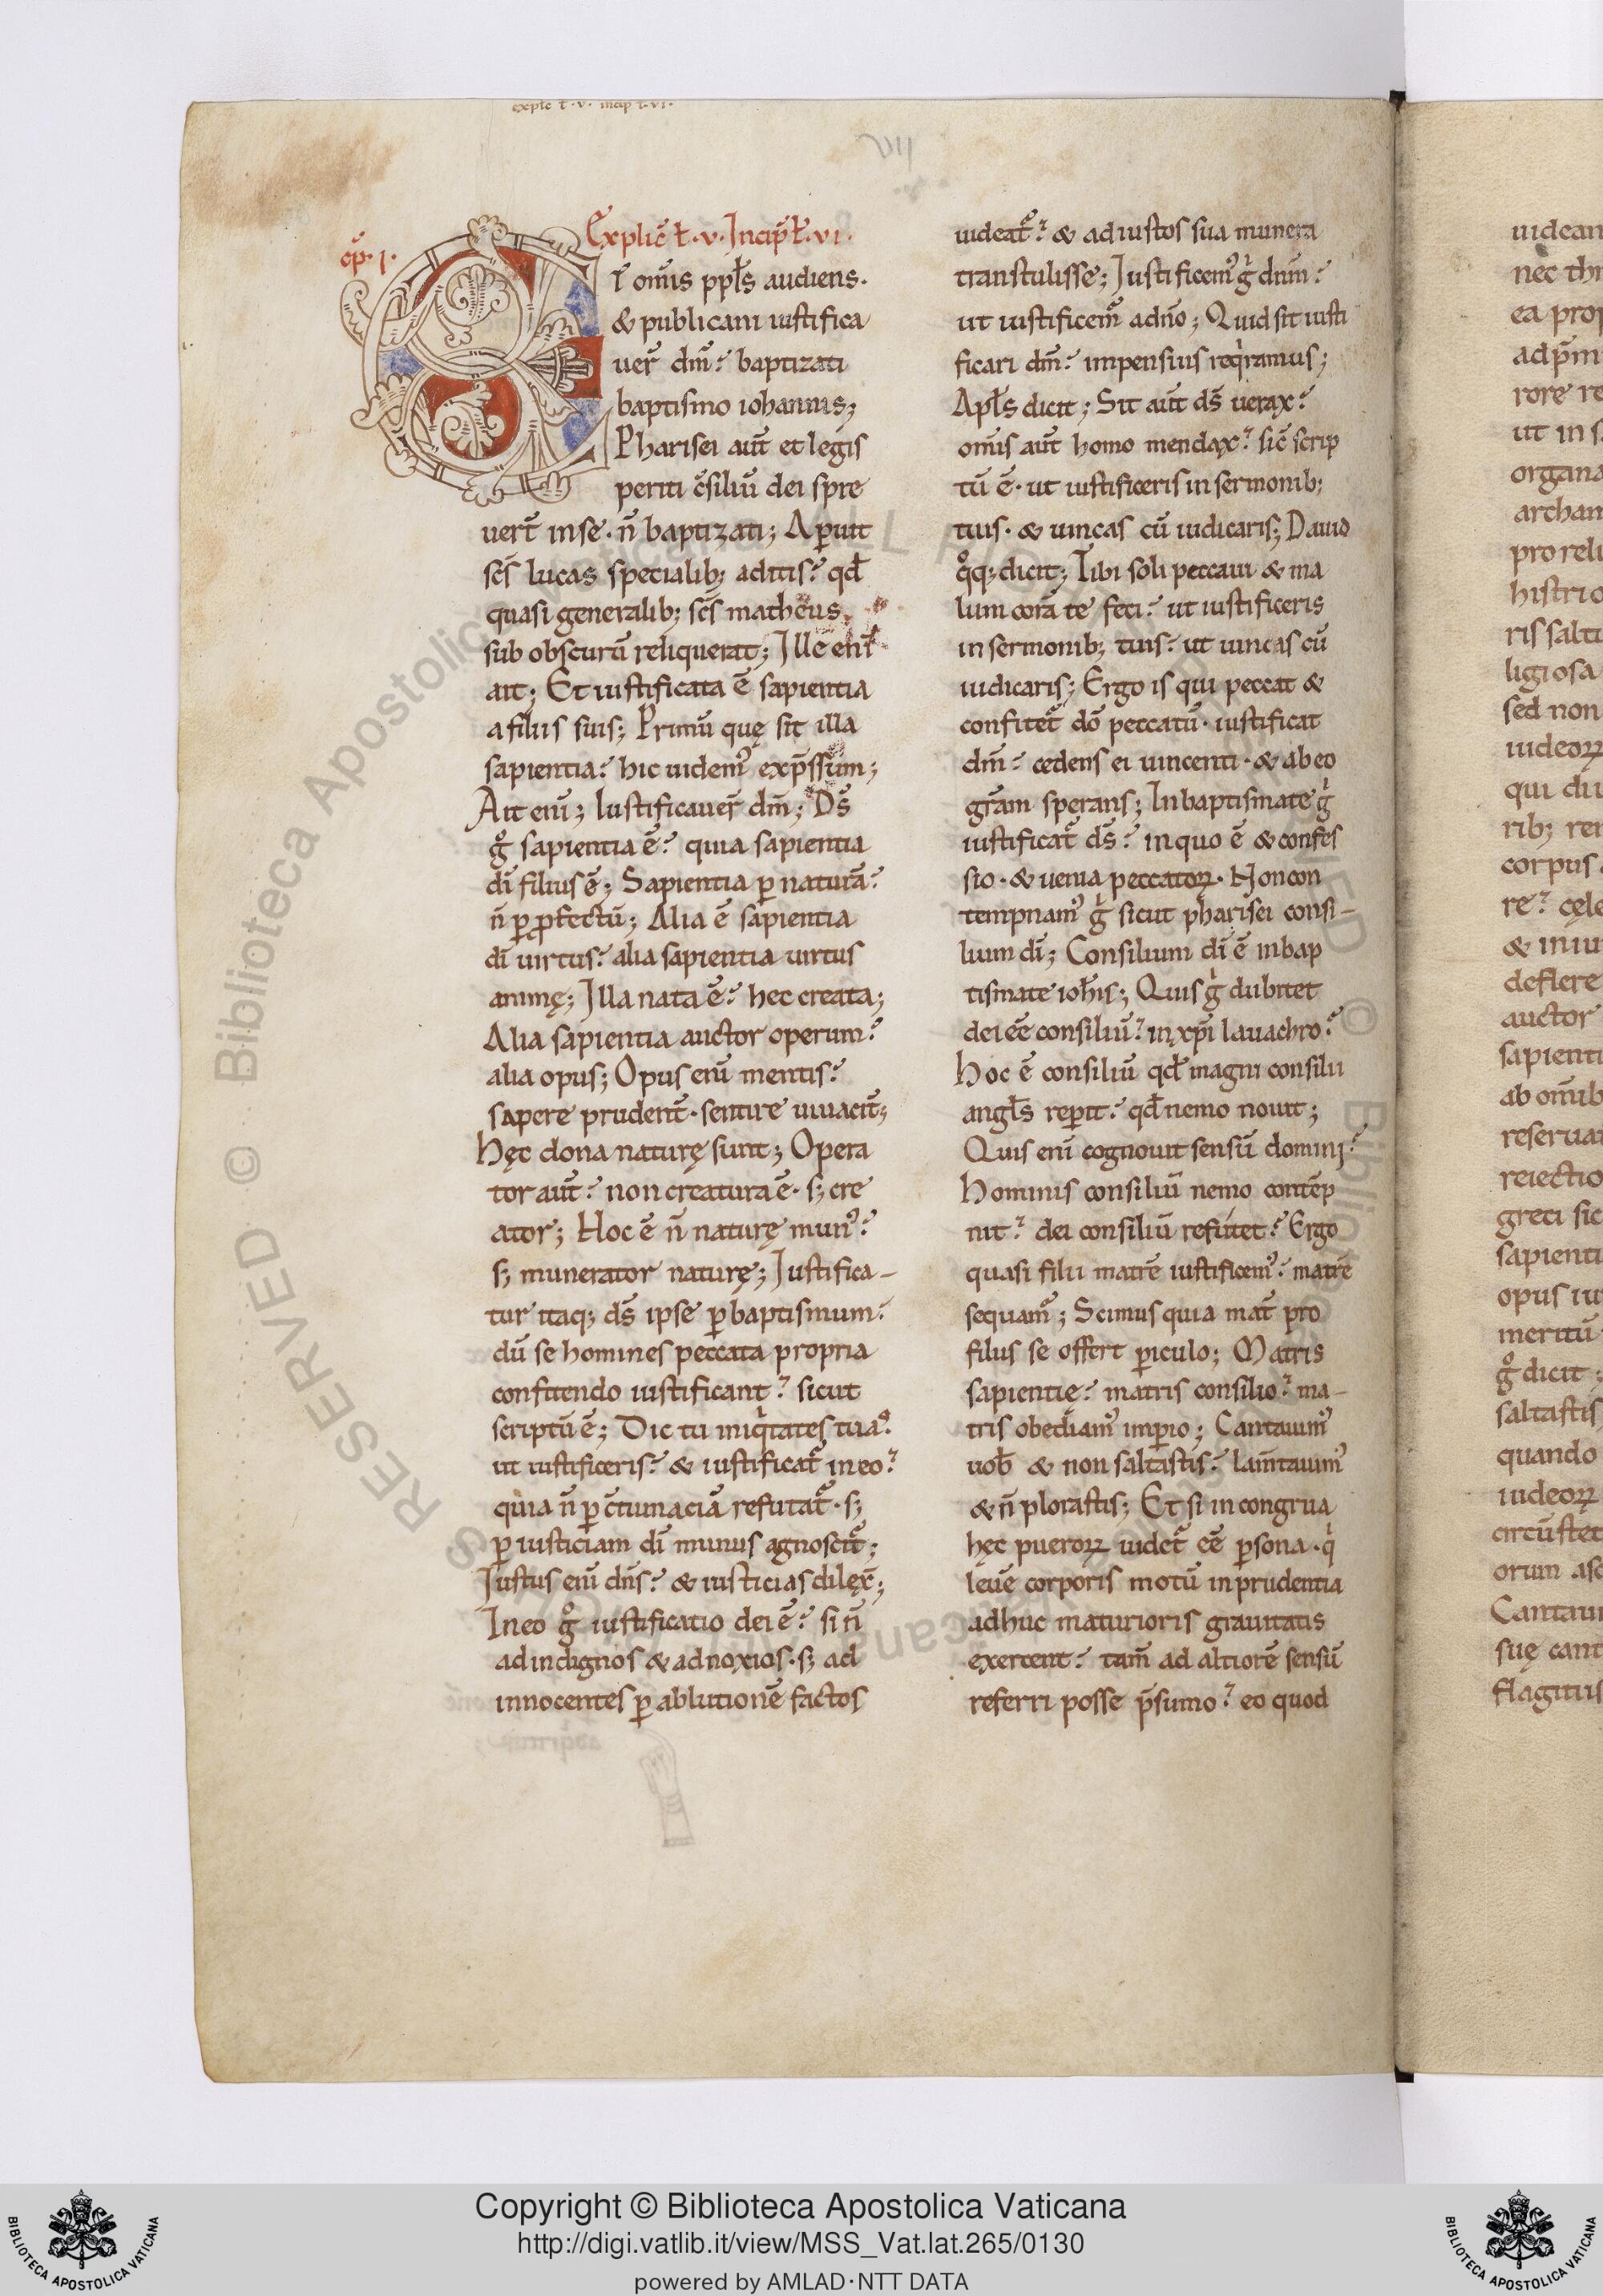 exple t·v· incip t·vi·
VII
Explic̄ t̄·v·Incip̄ t̄·vi·
cp̄·I·
ET om̄is ppl̄s audiens·
& publicani iustifica
uer̄ dm̄: baptizati
baptismo iohannis;
Pharisei aut̄ et legis
periti c̄siliū dei spre
uert̄ in se· n̄ baptizati; Aperuit
sc̄s lucas specialib; aditis: qd̄
quasi generalib; sc̄s matheus
sub obscurū reliquerat; Ille eni̅
ait; Et iustificata ē sapientia
a filiis suis; Primū quę sit illa
sapientia: hic uidem᾿ exp̄ssum;
Ait eni̅; Iustificauer̄ dm̄; Ds̄
gͦ sapientia ē: quia sapientia
dī filius ē; Sapientia ꝑ naturā:
n̄ ꝑ ꝓfectū; Alia ē sapientia
dī uirtus: alia sapientia uirtus
animę; Illa nata ē: hec creata;
Alia sapientia auctor operum:
alia opus; Opus eni̅ mentis:
sapere prudent̄· sentire uiuacit̄;
Hęc dona naturę sunt; Opera
tor aut̄: non creatura ē· s; cre
ator; Hoc ē n̄ naturę mun᾿:
s; munerator naturę; Iustifica-
tur itaq; ds̄ ipse ꝑ baptismum:
dū se homines peccata propria
confitendo iustificant: sicut
scriptū ē; Dic tu iniqͥtates tuas:
ut iustificeris: & iustificat᾿ in eo:
quia n̄ ꝑ c̄tumaciā refutat᾿· s;
ꝑ iusticiam dī munus agnoscit᾿;
Iustus eni̅ dn̄s: & iusticias dilex̄;
In eo gͦ iustificatio dei ē: si n̄
ad indignos & ad noxios· s; ad
innocentes ꝑ ablutionē factos
uideat᾿: & ad iustos sua munera
transtulisse; Iustificem᾿ gͥ dnm̄:
ut iustificem̄ a dn̄o; Quid sit iusti
ficari dm̄: impensius reqͥramus;
Apl̄s dicit; Sit aut̄ ds̄ uerax:
om̄is aut̄ homo mendax: sic̄ scrip
tū ē· ut iustificeris in sermonib;
tuis· & uincas cū iudicaris; Dauid
qͦq; dicit; Tibi soli peccaui & ma
lum corā te feci: ut iustificeris
in sermonib; tuis: ut uincas cū
iudicaris; Ergo is qui peccat &
confitet᾿ dō peccatū· iustificat
dm̄: cedens ei uincenti· & ab eo
gr̄am sperans; In baptismate gͥ
iustificat᾿ ds̄: in quo ē & confes
sio· & uenia peccatoꝝ· Non con
tempnam᾿ gͥ sicut pharisei consi-
lium dī; Consilium dī ē in bap
tismate ioh̄is; Quis gͥ dubitet
dei ēē consiliū: in xp̄i lauachro:
Hoc ē consiliū qd̄ magni consilii
angl̄s reperit: qd̄ nemo nouit;
Quis eni̅ cognouit sensū domini:
Hominis consiliū nemo contēp
nit: dei consiliū refutet: Ergo
quasi filii matrē iustificem᾿: matrē
sequam᾿; Scimus quia mat̄ pro
filiis se offert ꝑiculo; Matris
sapientię: matris consilio: ma-
tris obediam᾿ imꝑio; Cantauim᾿
uob̄ & non saltastis: lam̄tauim᾿
& n̄ plorastis; Et si in congrua
hęc pueroꝝ uidet᾿ ēē ꝑsona· qͥ
leuē corporis motū inprudentia
adhuc maturioris grauitatis
exercent: tam̄ ad altiorē sensū
referri posse p̄sumo: eo quod
Copyright © Biblioteca Apostolica Vaticana
http://digi.vatlib.it/view/MSS_Vat.lat.265/0130
powered by AMLAD·NTT DATA
BIBLIOTECA APOSTOLICA VATICANA
BIBLIOTECA APOSTOLICA VATICANA